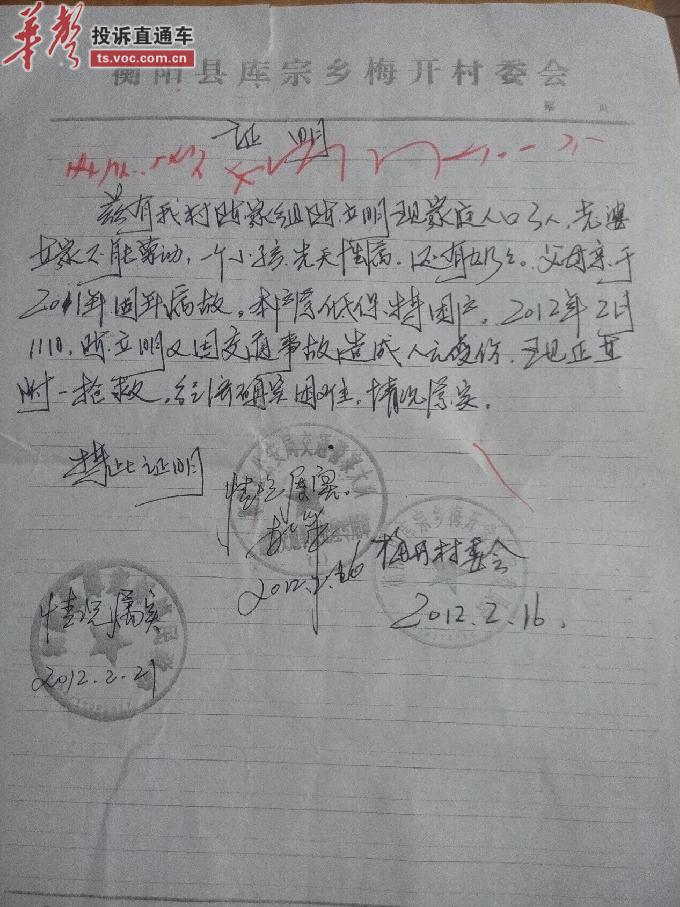 华声 投诉直通车
ts.voc.com.cn
衡阳县库宗乡梅开村委会
第 页
证明
兹有我村陈家组陈立明现家庭人口3人，老婆
在家不能劳动，一个小孩先天性病，还有奶奶。父母亲于
2011年因车病故。本户属低保、特困户。2012年2月
11日，陈立明又因交通事故造成人员受伤，现正在
抢救，经济确实困难，情况属实。
特此证明
情况属实
2012.2.16
梅开村委会
2012.2.16
情况属实
2012.2.21